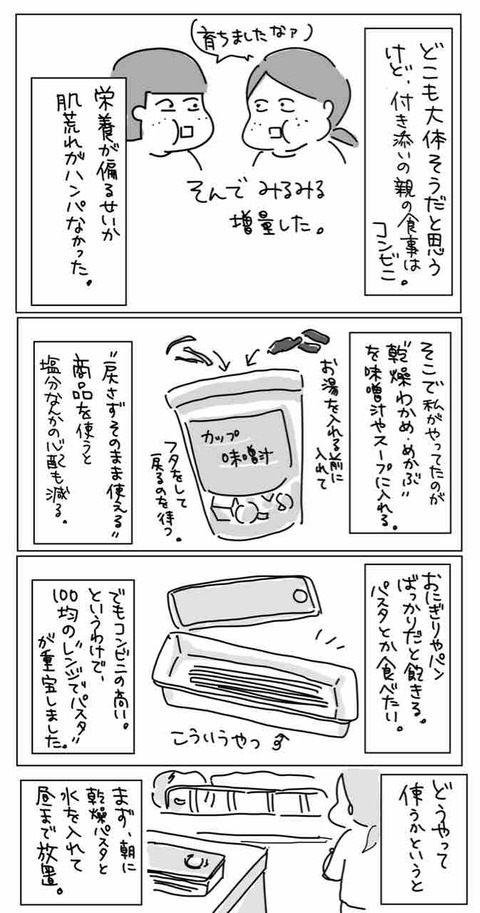 どこも大体そうだと思う
けど、付き添いの親の食事は
コンビニ。
(育ちましたなァ)
そんで みるみる
増量した。
栄養が偏るせいか
肌荒れがハンパなかった。
そこで私がやってたのが
“乾燥わかめ・めかぶ”
を味噌汁やスープに入れる。
お湯を入れる前に
入れて
カップ
味噌汁
フタをして
戻るのを待つ。
“戻さずそのまま使える”
商品を使うと
塩分なんかの心配も減る。
おにぎりやパン
ばっかりだと飽きる。
パスタとか食べたい。
こういうやつ
でもコンビニの高い。
というわけで、
100均の“レンジでパスタ”
が重宝しました。
どうやって
使うかというと
まず、朝に
乾燥パスタと
水を入れて
昼まで放置。